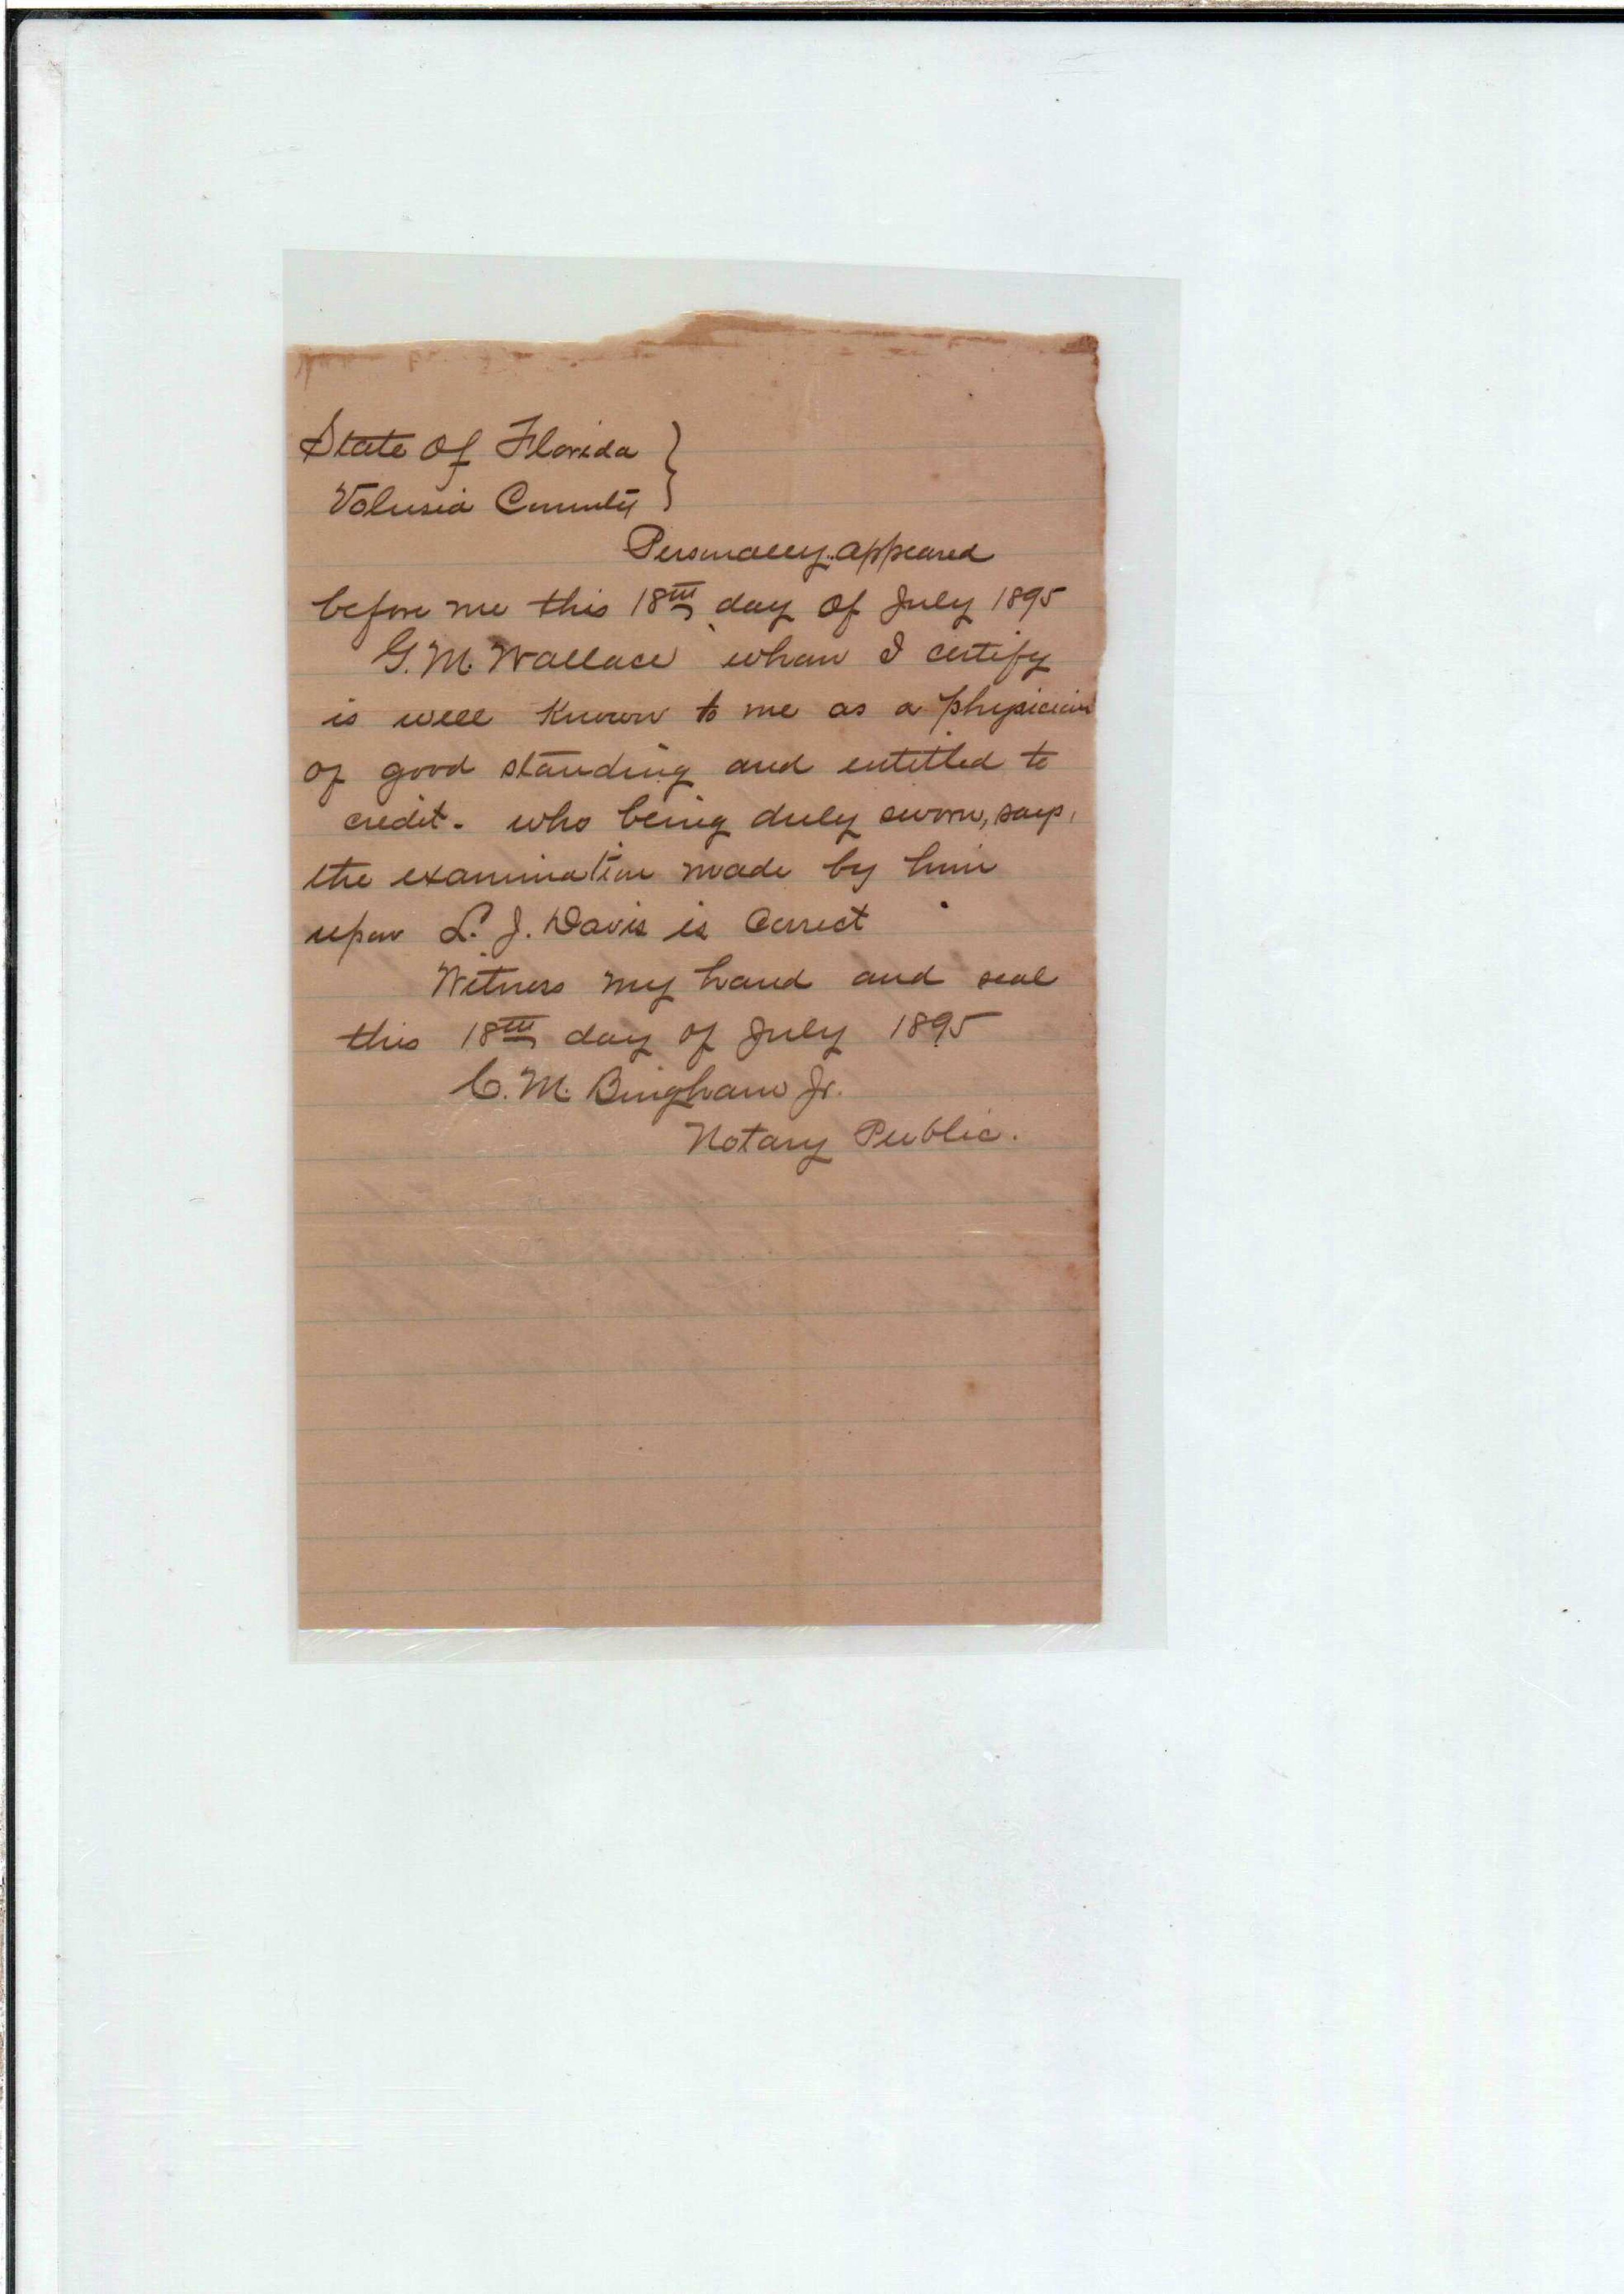 State of Florida }
Volusia County }
Personally appeared
before me this 18th day of July 1895
G. M. Wallace whom I certify
is well Known to me as a physician
of good standing and entitled to
credit. who being duly sworn, says,
the examination made by him
upon L. J. Davis is correct
Witness my hand and seal
this 18th day of July 1895
C. M. Bingham Jr.
Notary Public.